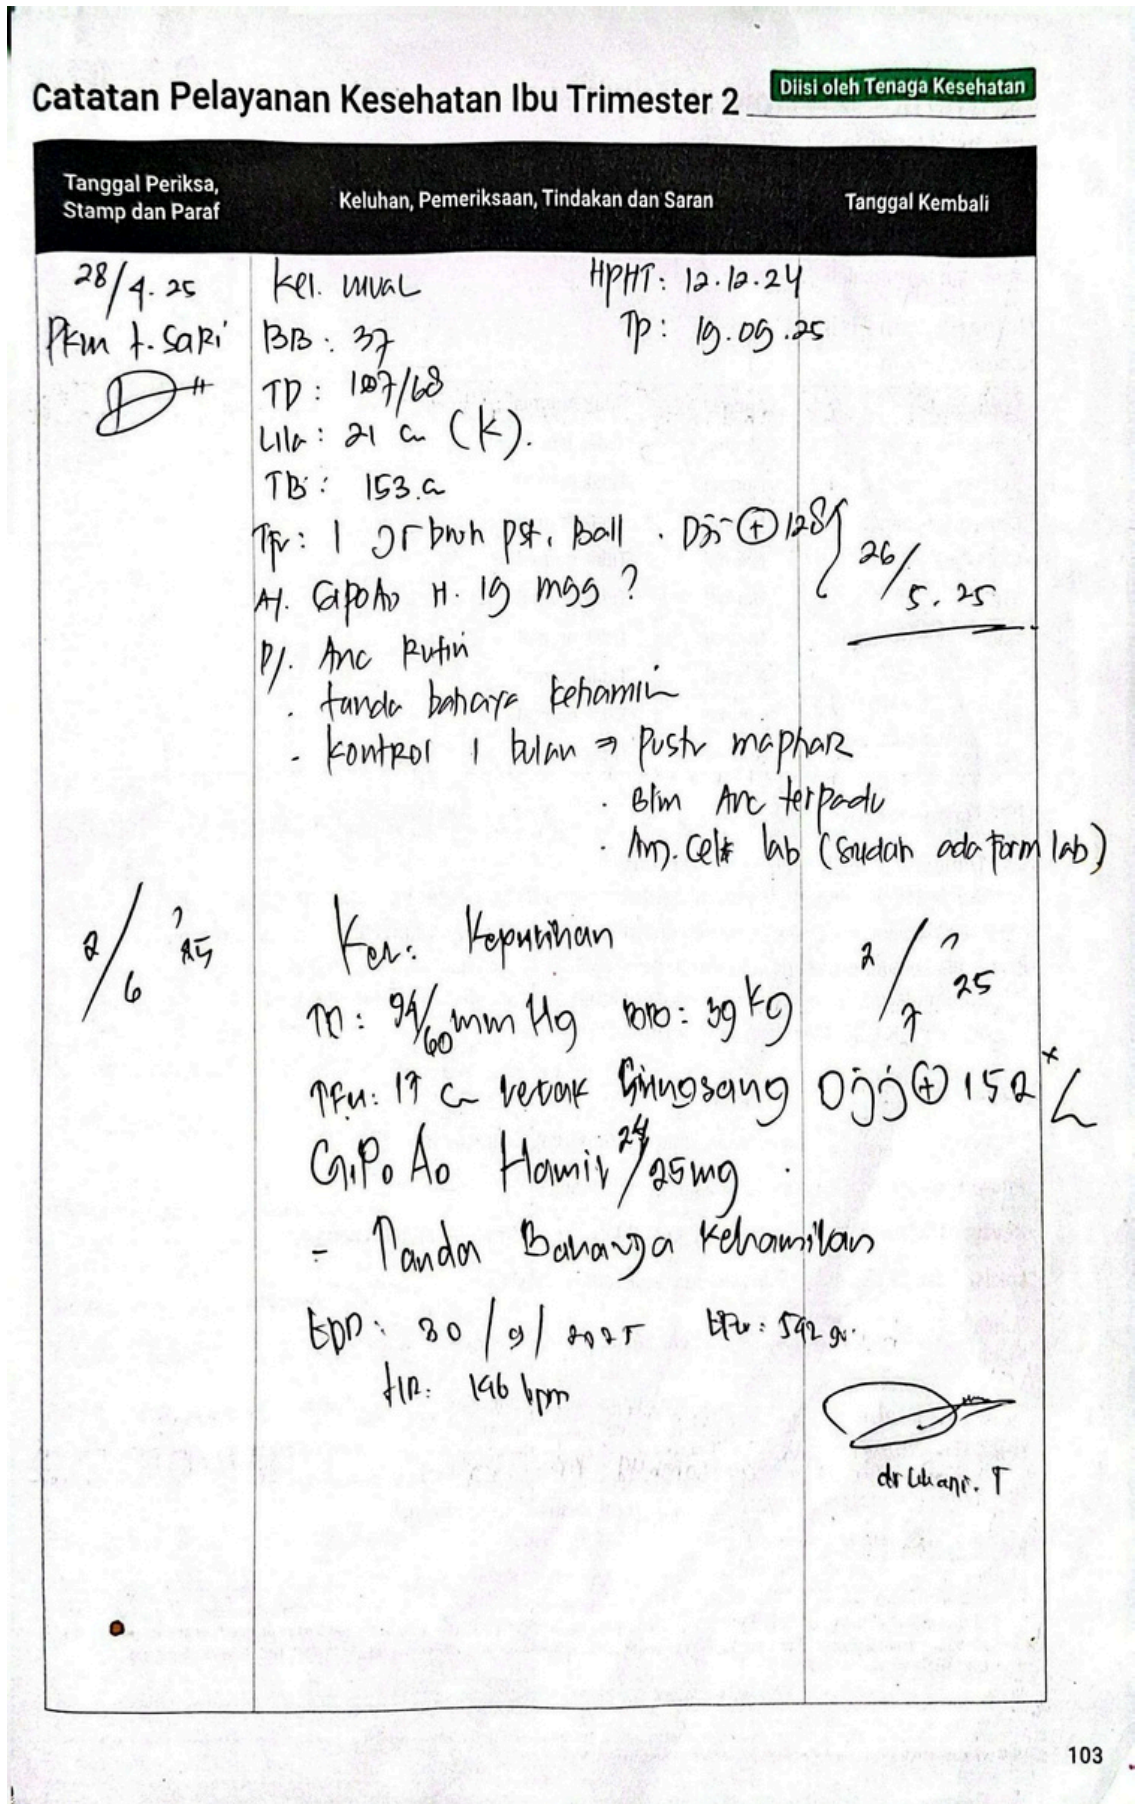 Catatan Pelayanan Kesehatan Ibu Trimester 2
Diisi oleh Tenaga Kesehatan
Tanggal Periksa,
Stamp dan Paraf
Keluhan, Pemeriksaan, Tindakan dan Saran
Tanggal Kembali
28/4.25
Pkm t. Sari
Kel. mual
HPHT: 12.12.24
TP: 19.09.25
BB: 37
TD: 107/68
Lila: 21 cm (K).
TB: 153 cm
Tfu: 1 Jr bwh pst, Ball. Djj ⊕ 128
26/5.25
A/. G1P0A0 H. 19 mgg ?
P/. Anc Rutin
. tanda bahaya kehamilan
. kontrol 1 bulan ⇒ Pustu maphar
. Blm Anc terpadu
. cek lab (sudah ada form lab)
2/6 25
Kel: Keputihan
2/7 25
TD: 94/60 mmHg BB: 39 kg
TFU: 17 cm letak Sungsang Djj ⊕ 152 x/
G1P0A0 Hamil 24/25 mg
- Tanda Bahaya Kehamilan
EDD: 30/9/2025 EFW: 592 gr.
HR: 146 bpm
103